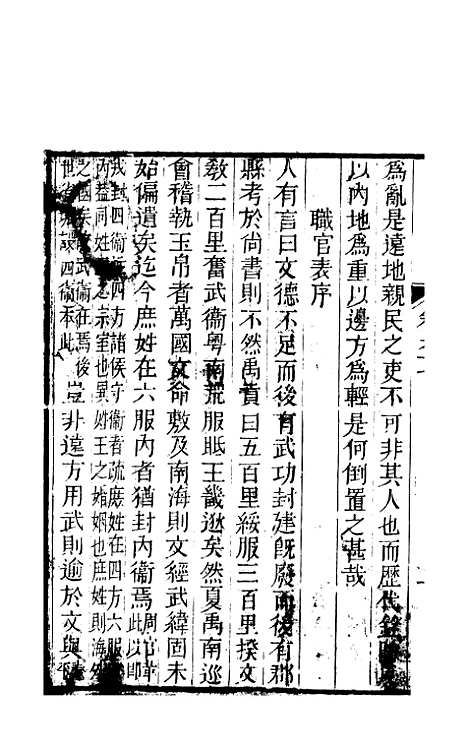 爲亂是遠地親民之吏不可非其人也而歷代
以內地爲重以邊方爲輕是何倒置之甚哉
職官表序
人有言曰文德不足而後有武功封建旣廢而後有郡
縣考於尚書則不然禹貢曰五百里綏服三百里揆文
敎二百里奮武衞粤南荒服眡王畿逖矣然夏禹南巡
會稽執玉帛者萬國文命敷及南海則文經武緯固未
始偏遺矣迄今庶姓在六服內者猶封內衞焉周官革
以此卽
我封四衞在四方諸侯守衞者疏庶姓在四方六服
內益同姓王之宗室也異姓王之婚姻也庶姓則海外
之國矣 武衞在焉後
世 四衞本此豈非遠方用武則逾於文與